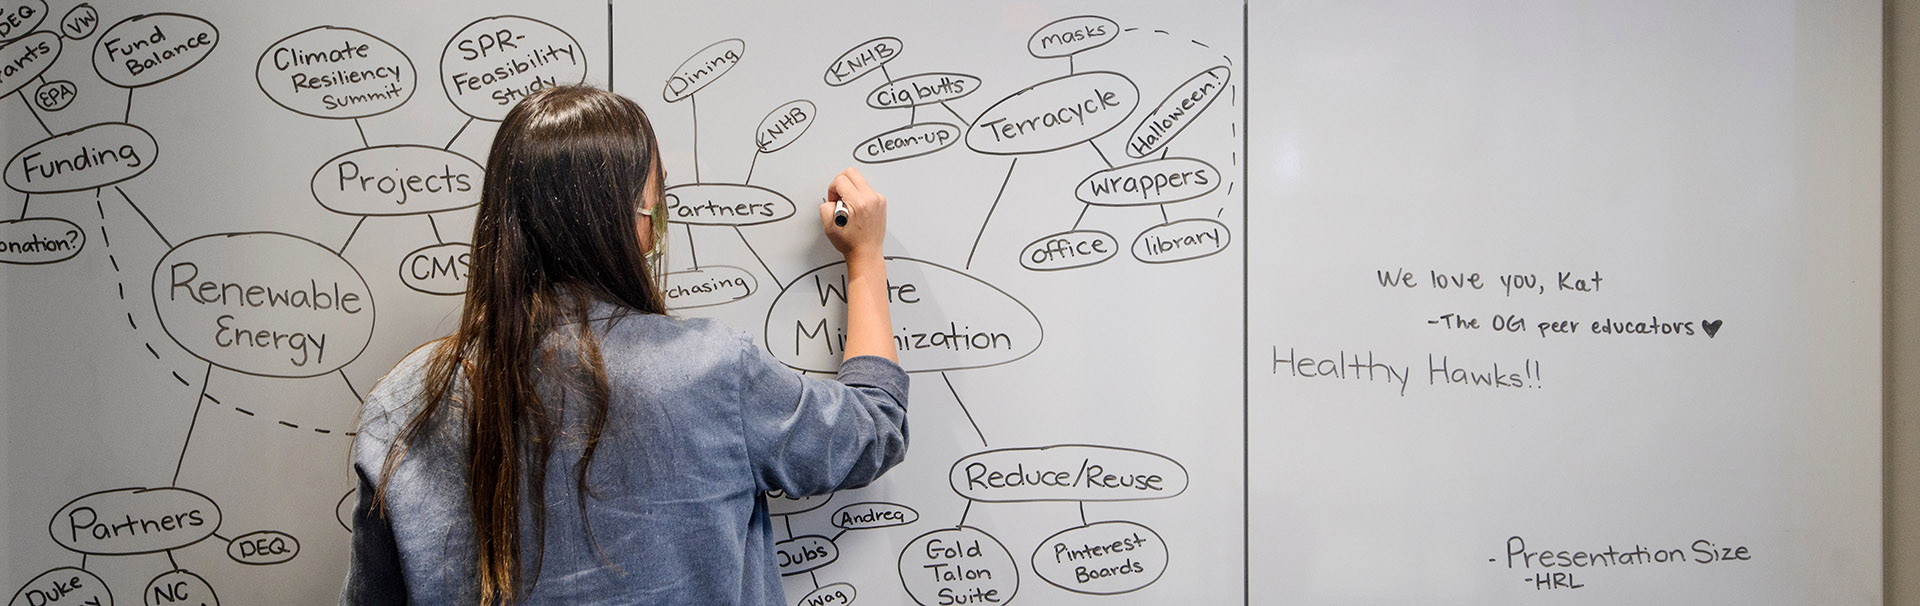 DEQ
VW
EPA
Fund
Balance
Funding
Climate
Resiliency
Summit
SPR-
Feasibility
Study
Projects
CMS
Renewable
Energy
Partners
DEQ
Duke
NC
Dining
KNHB
Partners
KNHB
Cig butts
clean-up
Terracycle
masks
Halloween!
wrappers
office
library
Reduce/Reuse
Gold
Talon
Suite
Pinterest
Boards
Andrea
Wag
We love you, Kat
-The OGI peer educators ♥
Healthy Hawks!!
- Presentation Size
-HRL